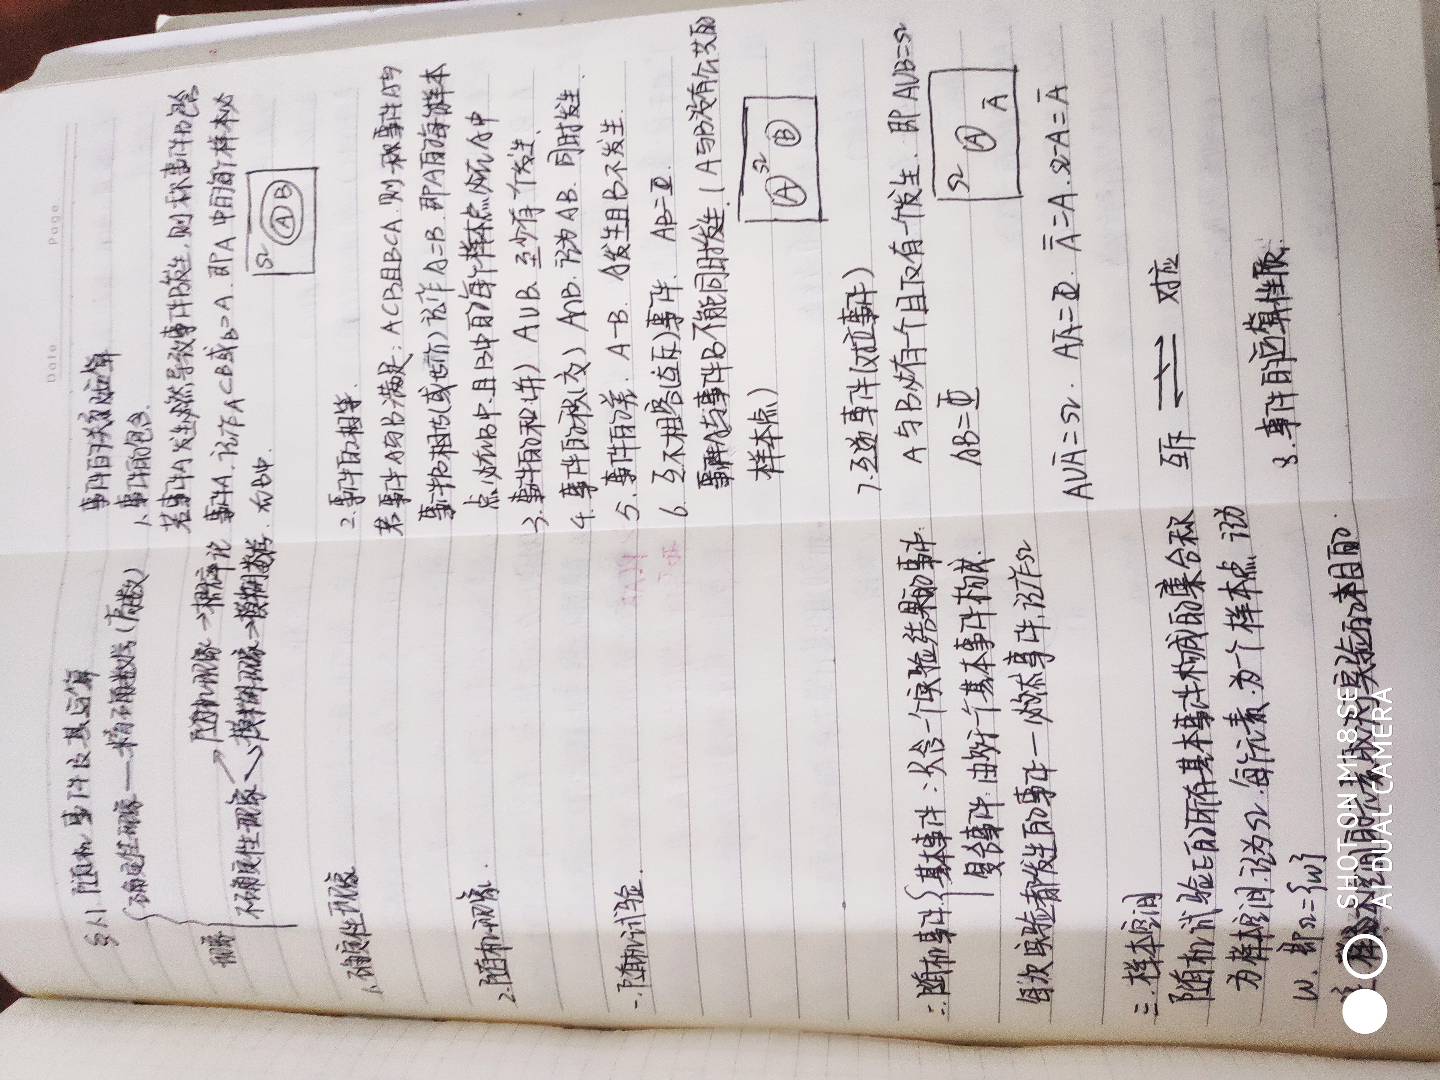 Date Page
§1.1 随机事件及其运算
确定性现象——精确数学(高数)
现象
不确定性现象
随机现象→概率论
模糊现象→模糊数学
1.确定性现象
2.随机现象.
一.随机试验.
二.随机事件 基本事件:只含一个实验结果的事件.
复合事件:由多于一个基本事件构成.
每次实验都发生的事件—必然事件,记作Ω
三.样本空间
随机试验E的所有基本事件构成的集合称
为样本空间.记为Ω.每个元素为一个样本点,记为
ω. 即Ω={ω}
注 样本空间的元素取决于实验的目的.
事件的关系及运算
1、事件的包含.
若事件A发生必然导致事件B发生,则称事件B包含
事件A,记作A⊂B或B⊃A.即A中的每个样本必
在B中.
Ω A B
2.事件的相等.
若事件A与B满足:A⊂B且B⊂A.则称事件A与
事件B相等(或等价)记作A=B.即A的每个样本
点必在B中.且B中的每个样本点必在A中
3.事件的和(并) A∪B.至少有一个发生.
4.事件的积(交) A∩B.记为AB.同时发生.
5.事件的差. A-B. A发生且B不发生.
6.互不相容(互斥)事件. AB=Φ.
事件A与事件B不能同时发生.(A与B没有公共的
样本点)
Ω A B
7.互逆事件(对立事件)
A与B必有一个且仅有一个发生.即A∪B=Ω
AB=Φ
Ω A Ā
A∪Ā=Ω. AĀ=Φ. A̿=A.Ω-A=Ā
互斥 ⇌ 对应
8.事件的运算性质.
SHOT ON MI 8 SE
AI DUAL CAMERA